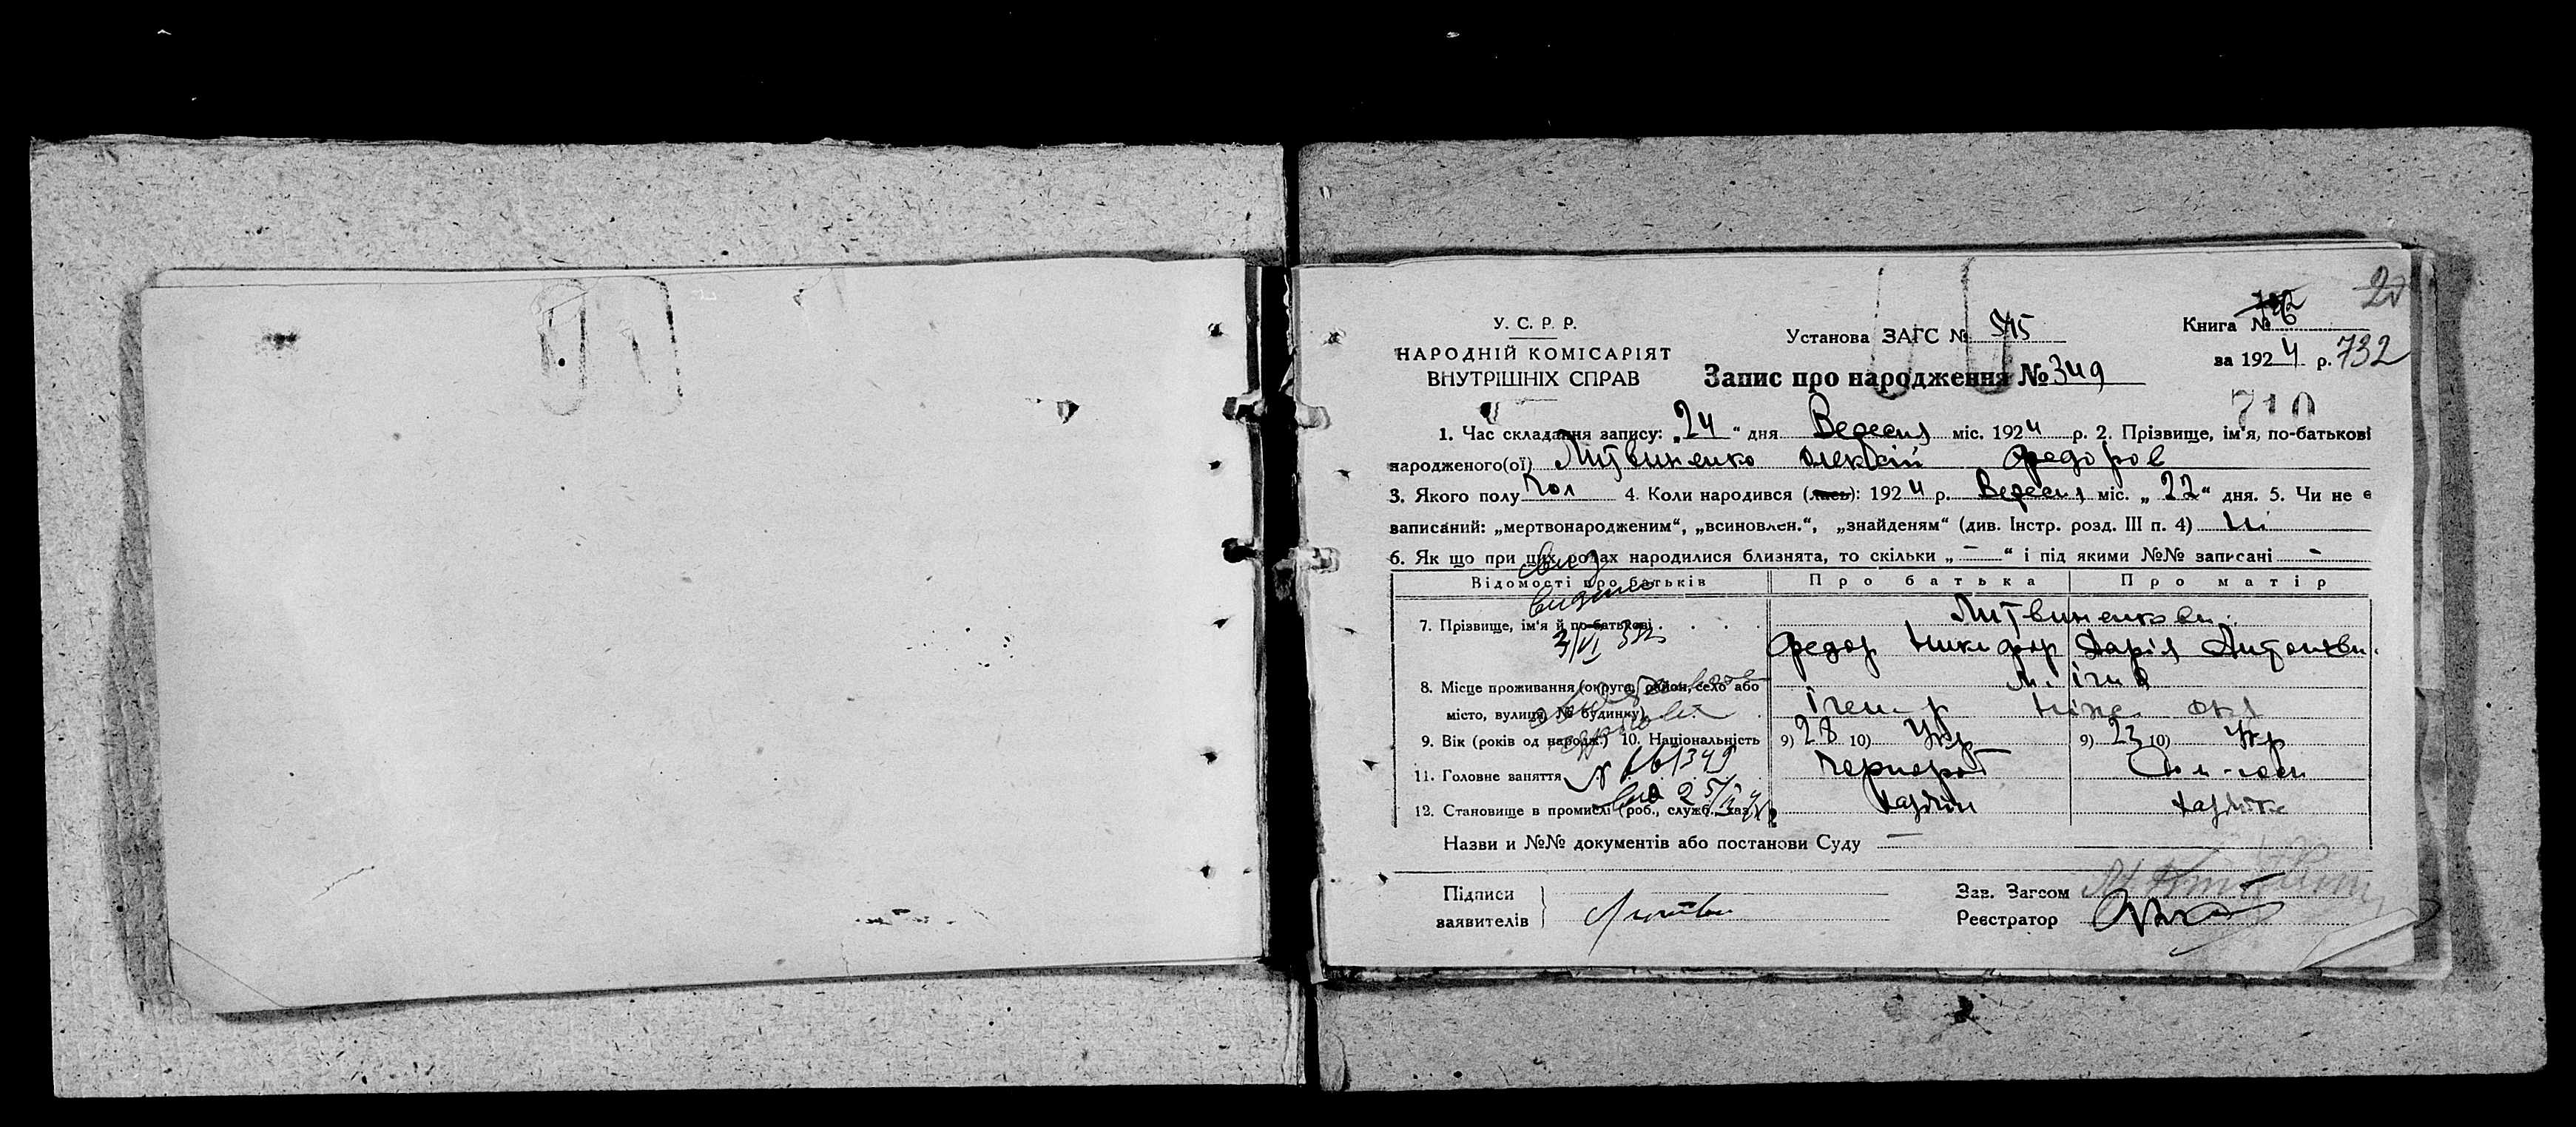 20
У. С. Р. Р.
НАРОДНІЙ КОМІСАРІЯТ
ВНУТРІШНІХ СПРАВ
Установа ЗАГС №
Книга №
за 1924 р. 732
Запис про народження № 349
710
1. Час складання запису: „24“ дня Вересня міс. 1924 р. 2. Прізвище, ім'я, по-батькові
народженого(ої) Литвиненко Олексій Федоров
3. Якого полу Чол 4. Коли народився (лась): 1924 р. Вересня міс. „22“ дня. 5. Чи не є
записаний: „мертвонародженим“, „всиновлен.“, „знайденям“ (див. Інстр. розд. III п. 4) ні
6. Як що при цих родах народилися близнята, то скільки „—“ і під якими №№ записані -
Відомості про батьків Про батька Про матір
7. Прізвище, ім'я й по-батькові Литвиненкови
Федор Никифор Дарія Антонівн.
8. Місце проживання (округа, район, село або м. Ічня
місто, вулиця, № будинку) Ічен р Ніже окр
9. Вік (років од народж.) 10. Національність 9) 28 10) Укр 9) 23 10) Укр
11. Головне заняття Чорнороб
12. Становище в промислі (роб., служб., хаз.)
№ 661349
Назви и №№ документів або постанови Суду —
Підписи
заявителів
Зав. Загсом
Реєстратор